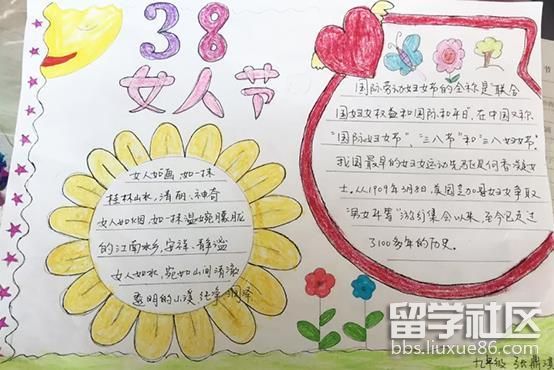 38
女人节
女人如画,如一抹
桂林山水,清丽、神奇
女人如烟,如一抹温婉朦胧
的江南水乡,安祥、静谧
女人如水,宛如山间清澈
慧明的小溪,纯净
国际劳动妇女节的全称是"联合
国妇女权益和国际和平日",在中国又称
"国际妇女节"、"三八节"和"三八妇女节"。
我国最早的妇女运动先驱是何香凝女
士。从1909年3月8日,美国芝加哥妇女争取
"男女平等"游行集会以来,至今已走过
了100多年的历史。
九年级 张
留学社区
bbs.liuxue86.com